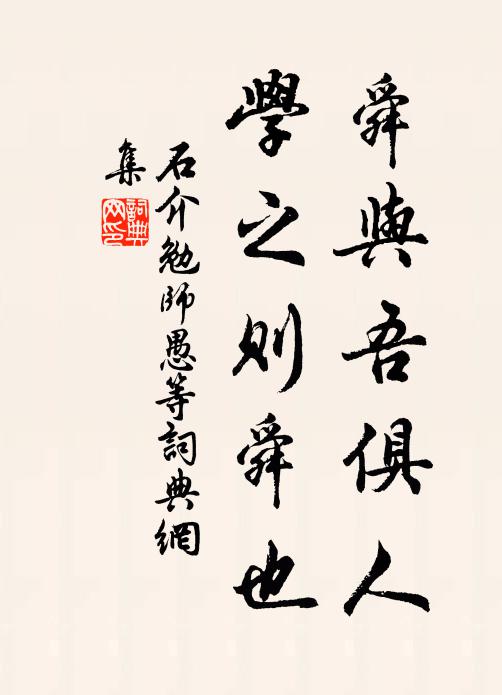 舜與吾俱人
學之則舜也
石介勉師愚等詞典網
集
詞典網印